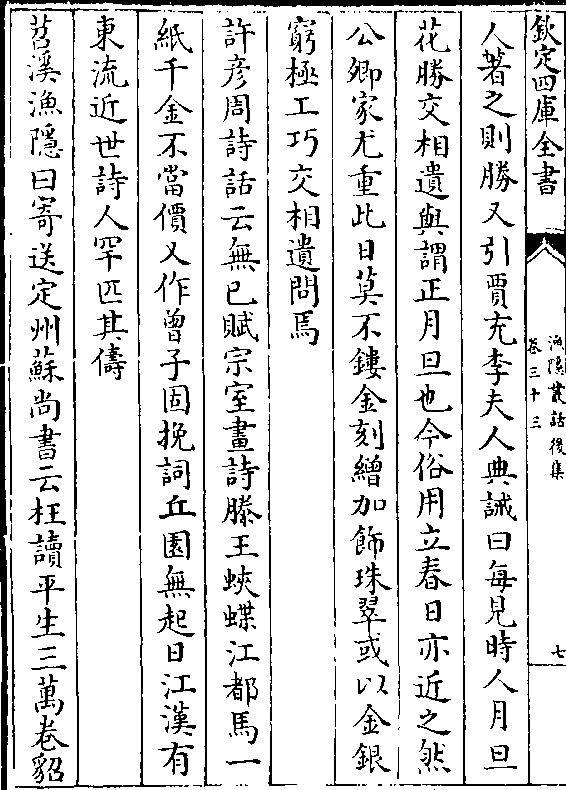 欽定四庫全書
漁隱叢話後集
卷三十三
七
人著之則勝又引賈充李夫人典誡曰每見時人月旦
花勝交相遺與謂正月旦也今俗用立春日亦近之然
公卿家尤重此日莫不鏤金刻繒加飾珠翠或以金銀
窮極工巧交相遺問焉
許彦周詩話云無已賦宗室畫詩滕王蛺蝶江都馬一
紙千金不當價又作曾子固挽詞丘園無起日江漢有
東流近世詩人罕匹其儔
苕溪漁隱曰寄送定州蘇尚書云枉讀平生三萬卷貂